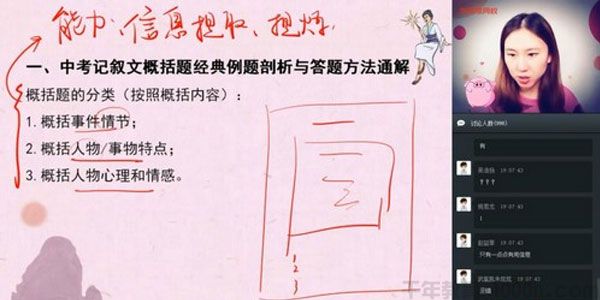 能力：信息提取、提炼
一、中考记叙文概括题经典例题剖析与答题方法通解
概括题的分类（按照概括内容）：
1.概括事件情节；
2.概括人物/事物特点；
3.概括人物心理和情感。
1
2
3
讨论人数(998)
有
19:07:43
? ? ?
19:07:43
!
19:07:43
只有一点点有用信息
19:07:43